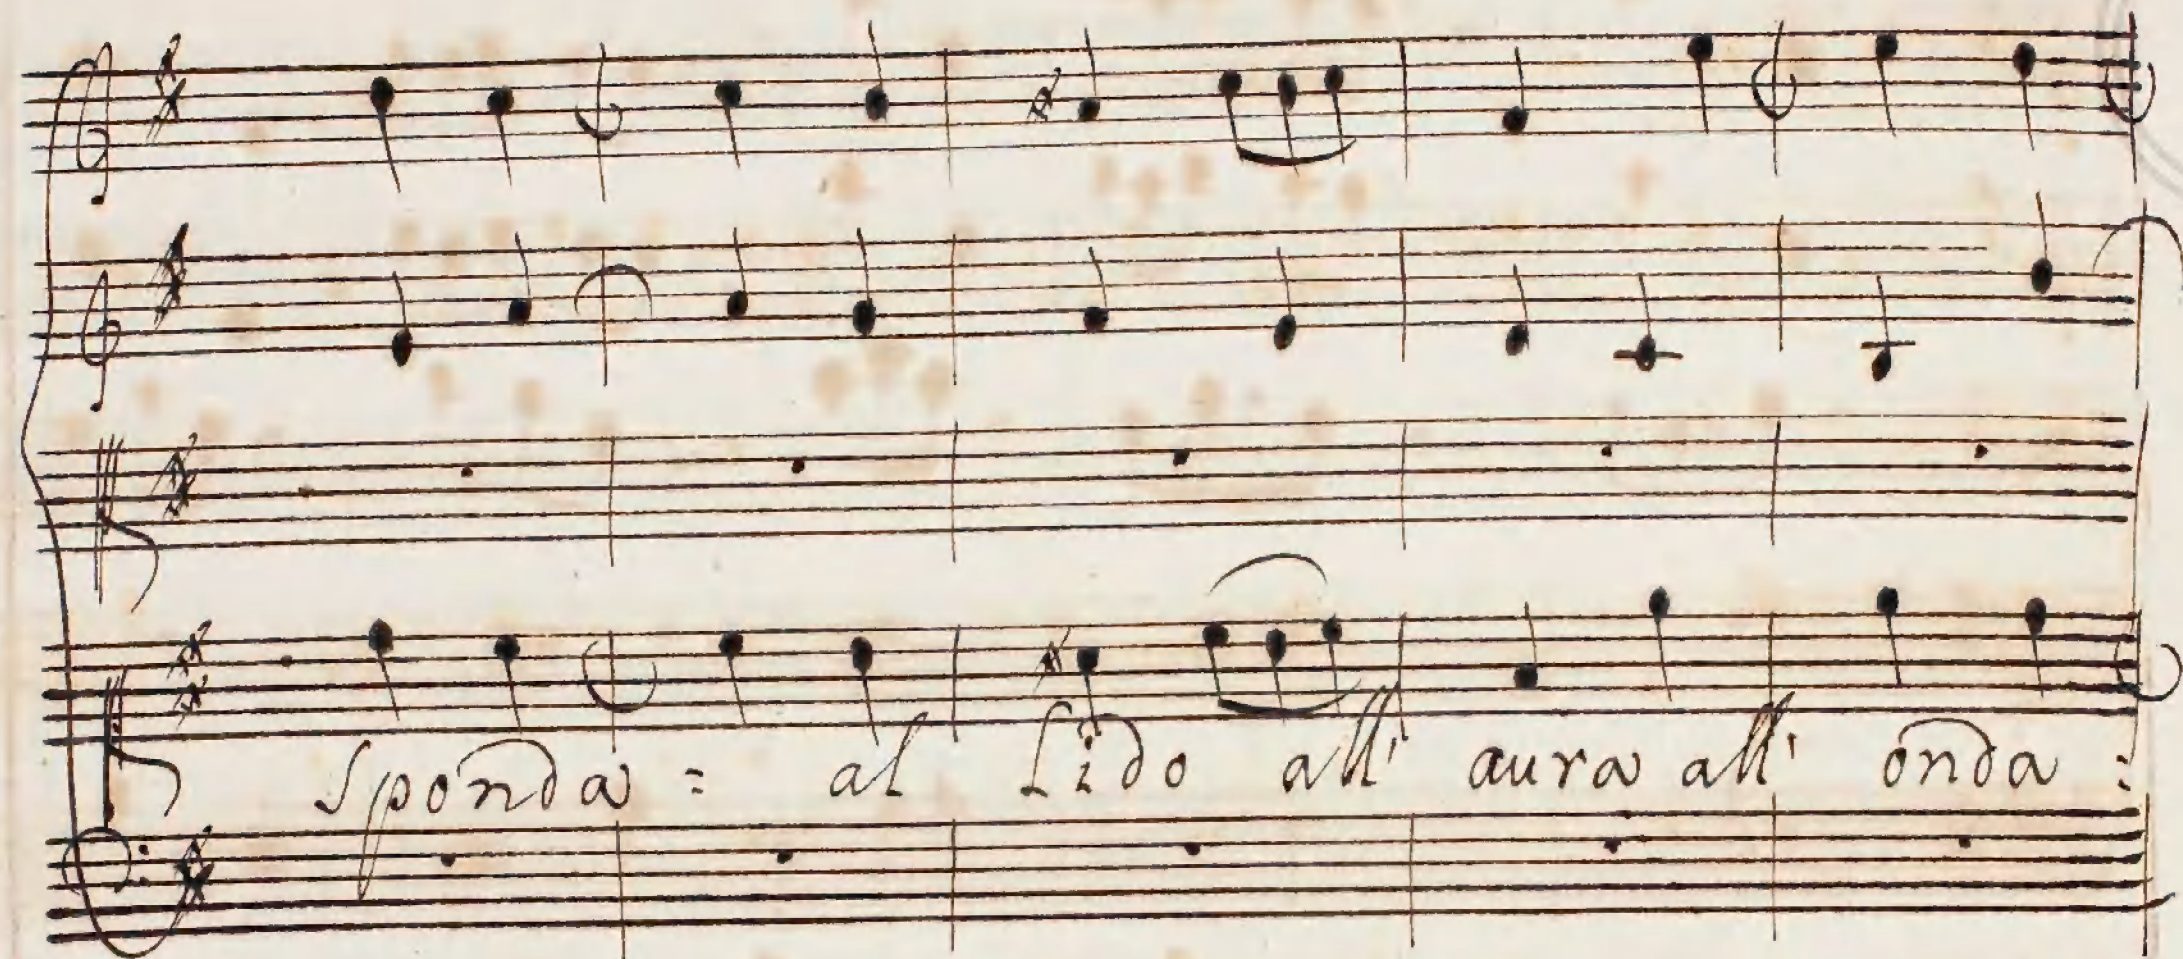 Sponda = al Lido all' aura all' onda :